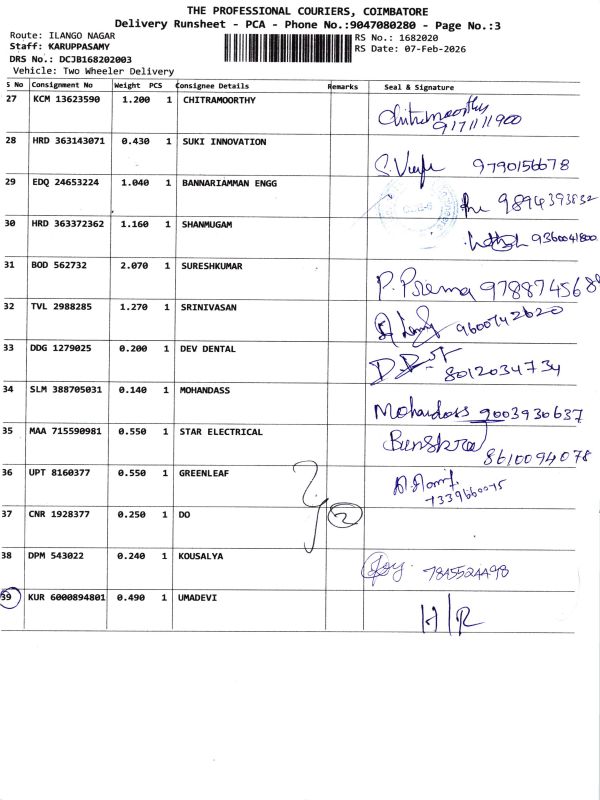 THE PROFESSIONAL COURIERS, COIMBATORE
Delivery Runsheet - PCA - Phone No.:9047080280 - Page No.:3
Route: ILANGO NAGAR
RS No.: 1682020
Staff: KARUPPASAMY
RS Date: 07-Feb-2026
DRS No.: DCJB168202003
Vehicle: Two Wheeler Delivery
S No Consignment No Weight PCS Consignee Details Remarks Seal & Signature
27 KCM 13623590 1.200 1 CHITRAMOORTHY Chitramoorthy
9171111900
28 HRD 363143071 0.430 1 SUKI INNOVATION
9790156678
29 EDQ 24653224 1.040 1 BANNARIAMMAN ENGG 9894393832
30 HRD 363372362 1.160 1 SHANMUGAM
9360041800
31 BOD 562732 2.070 1 SURESHKUMAR
P. Prema 978874568
32 TVL 2988285 1.270 1 SRINIVASAN
9600742620
33 DDG 1279025 0.200 1 DEV DENTAL
8012034734
34 SLM 388705031 0.140 1 MOHANDASS
Mohandass 9003930637
35 MAA 715590981 0.550 1 STAR ELECTRICAL
8610094078
36 UPT 8160377 0.550 1 GREENLEAF
7339660075
37 CNR 1928377 0.250 1 DO 2
38 DPM 543022 0.240 1 KOUSALYA
7845524498
39 KUR 6000894801 0.490 1 UMADEVI
H/R